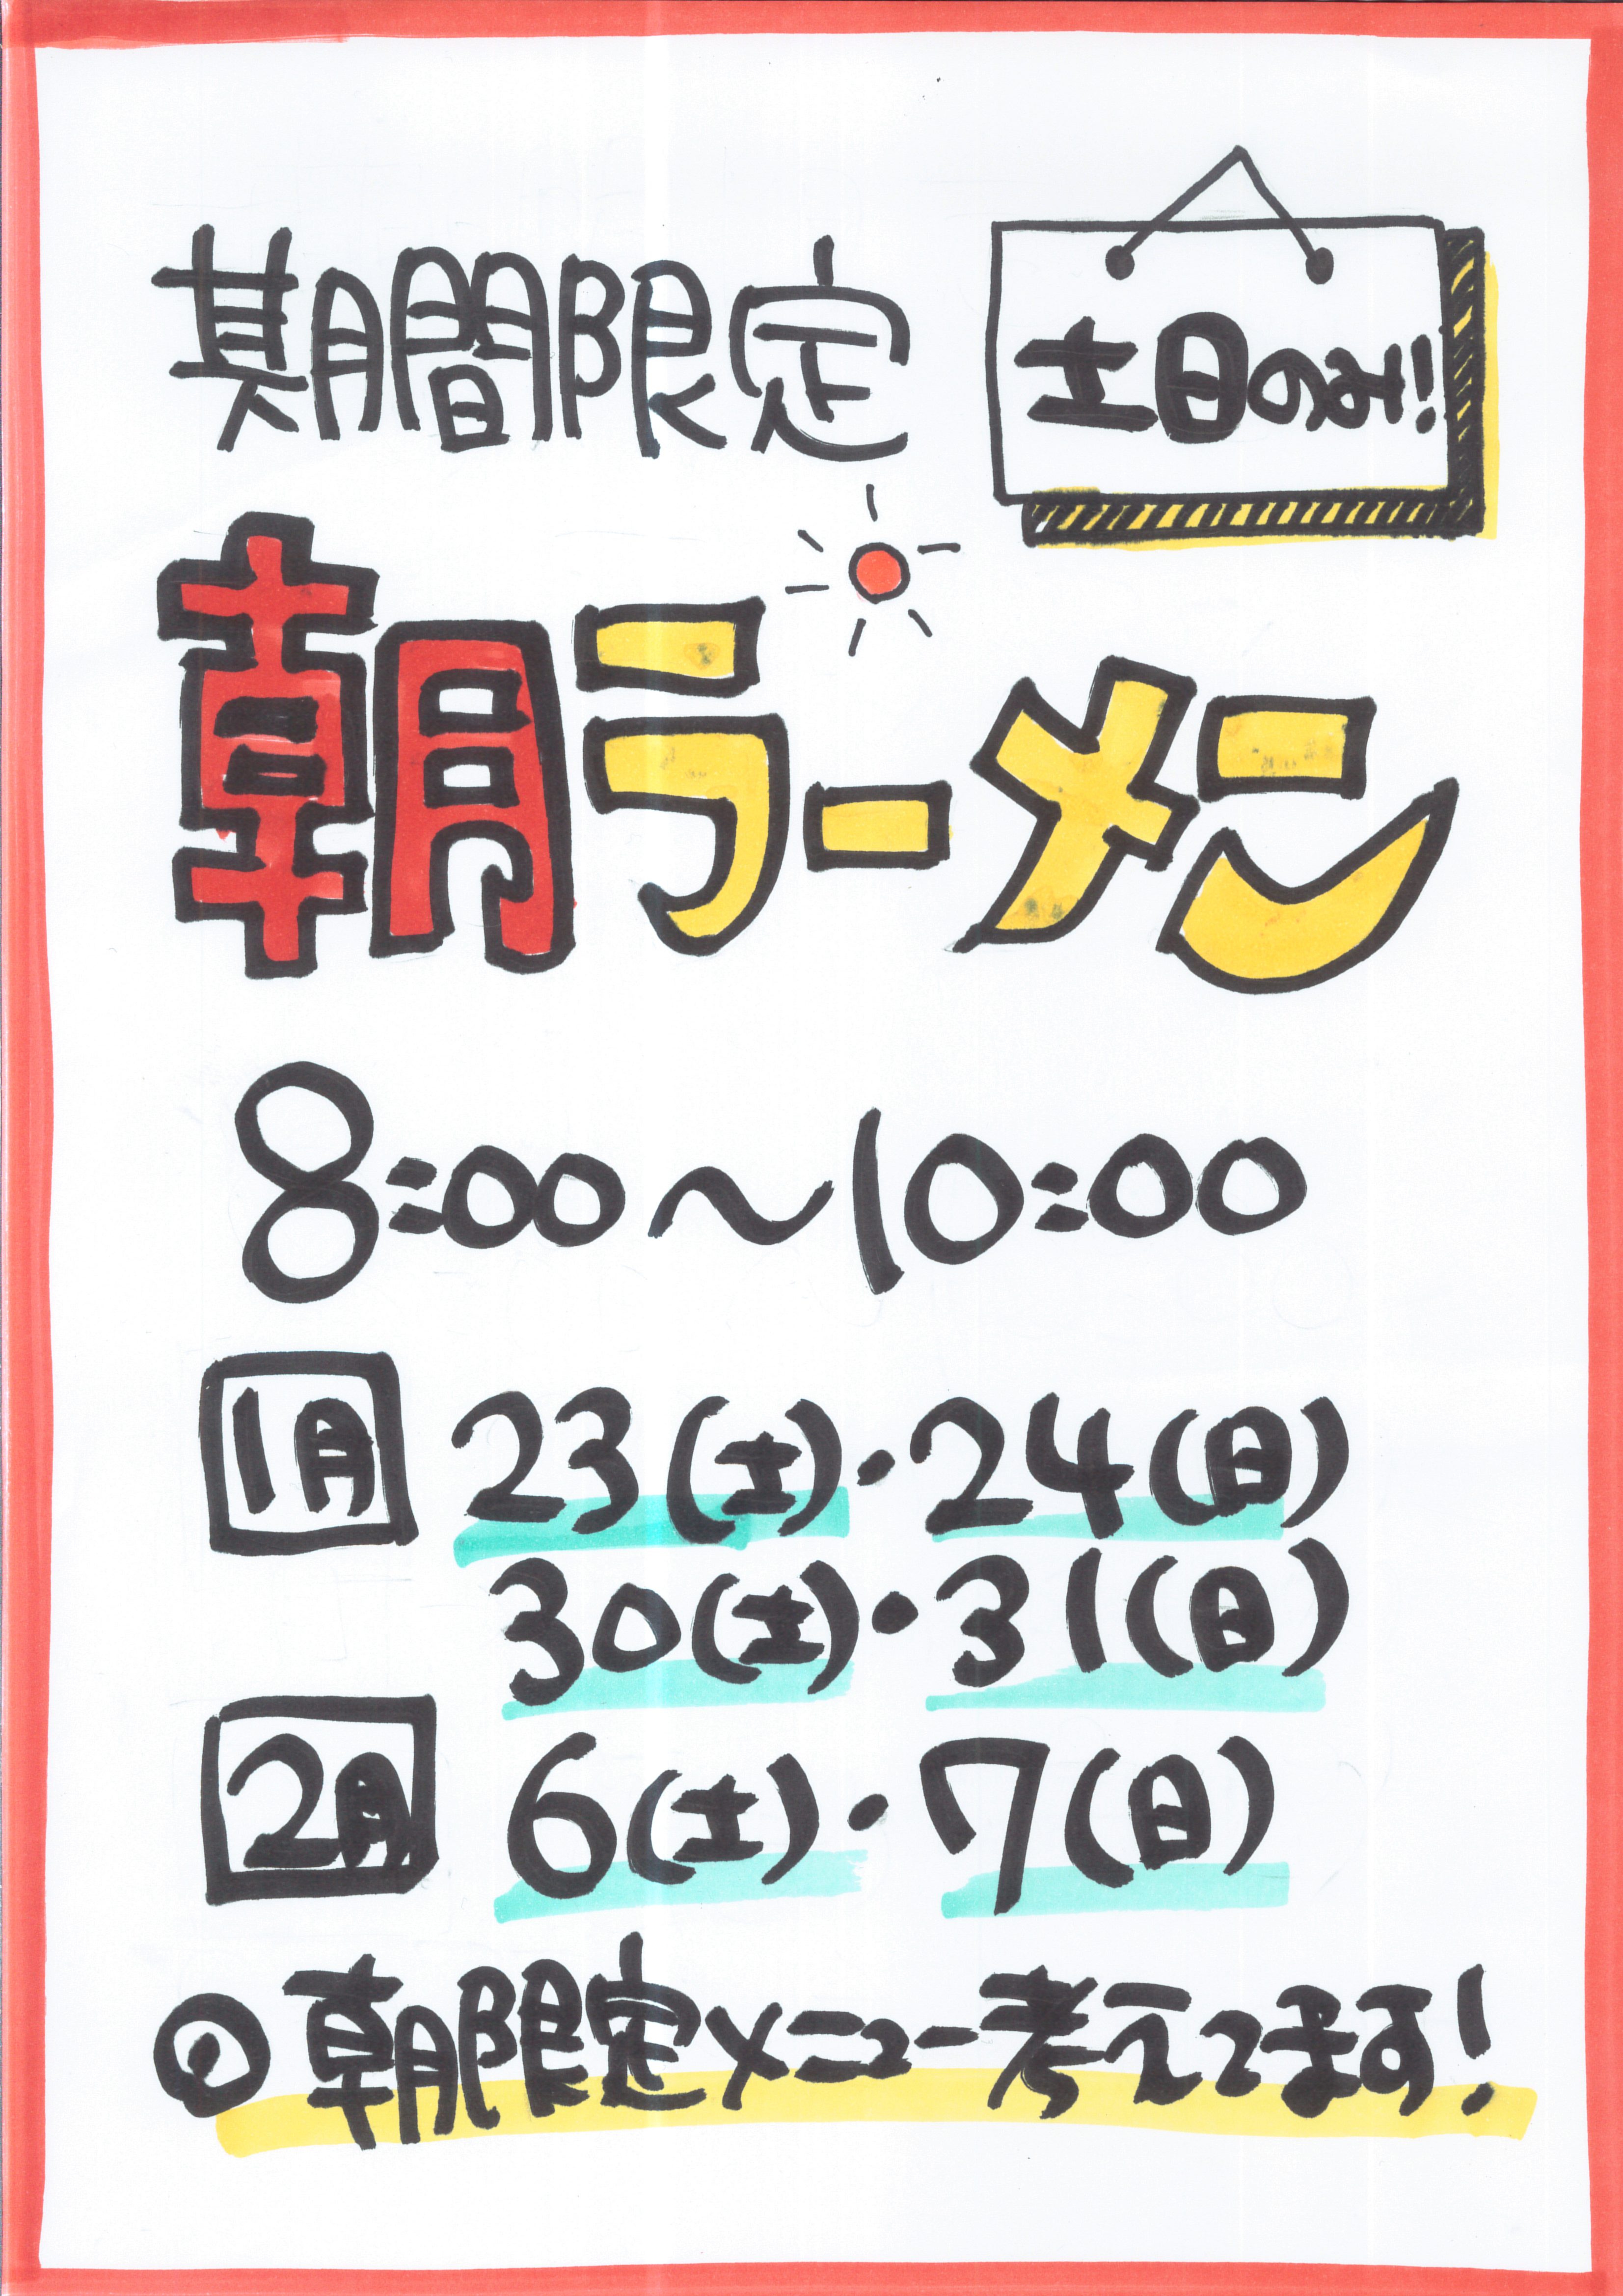 期間限定
土日のみ!!
朝ラーメン
8:00～10:00
1月 23(土)・24(日)
30(土)・31(日)
2月 6(土)・7(日)
⦿朝限定メニュー考えてます!